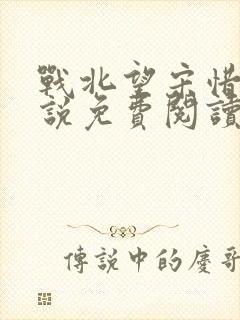 戰北望宋惜
說免費閱讀
傳說中的慶哥